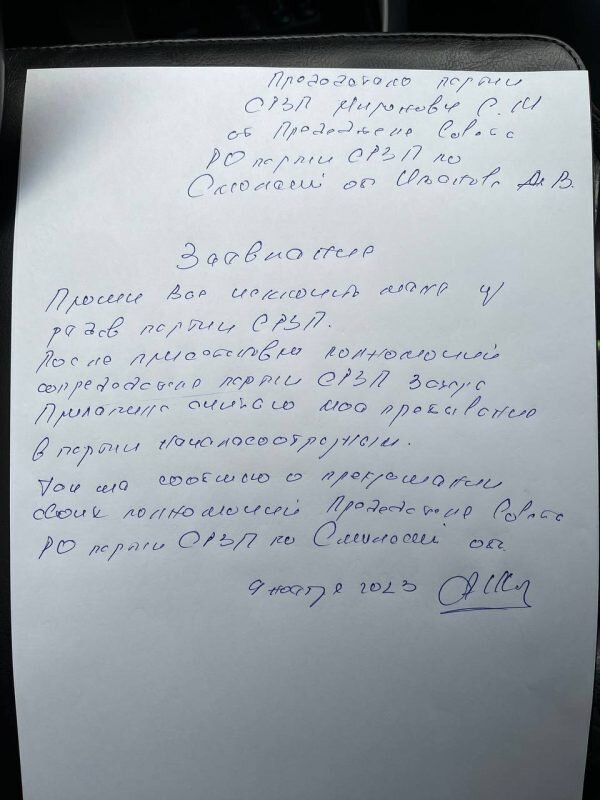 Председателю партии
СРЗП Миронову С. М
от Председателя Совета
РО партии СРЗП по
Смоленской об В.
Заявление
Прошу Вас исключить меня из
рядов партии СРЗП.
После приостановки полномочий
сопредседателя партии СРЗП Захара
Прилепина считаю мое пребывание
в партии нецелесообразным.
Так же сообщаю о прекращении
своих полномочий Председателя Совета
РО партии СРЗП по Смоленской об.
9 ноября 2023